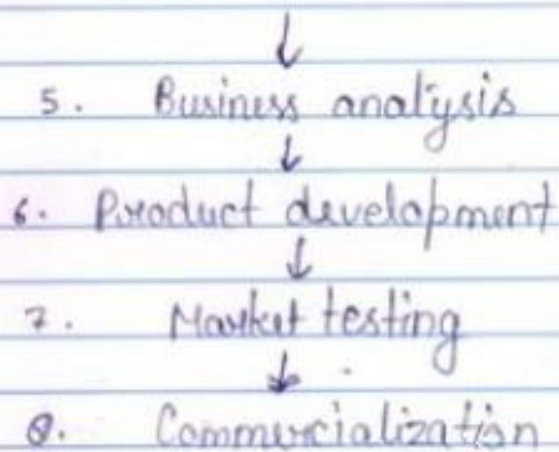 ↓
5. Business analysis
↓
6. Product development
↓
7. Market testing
↓
8. Commercialization